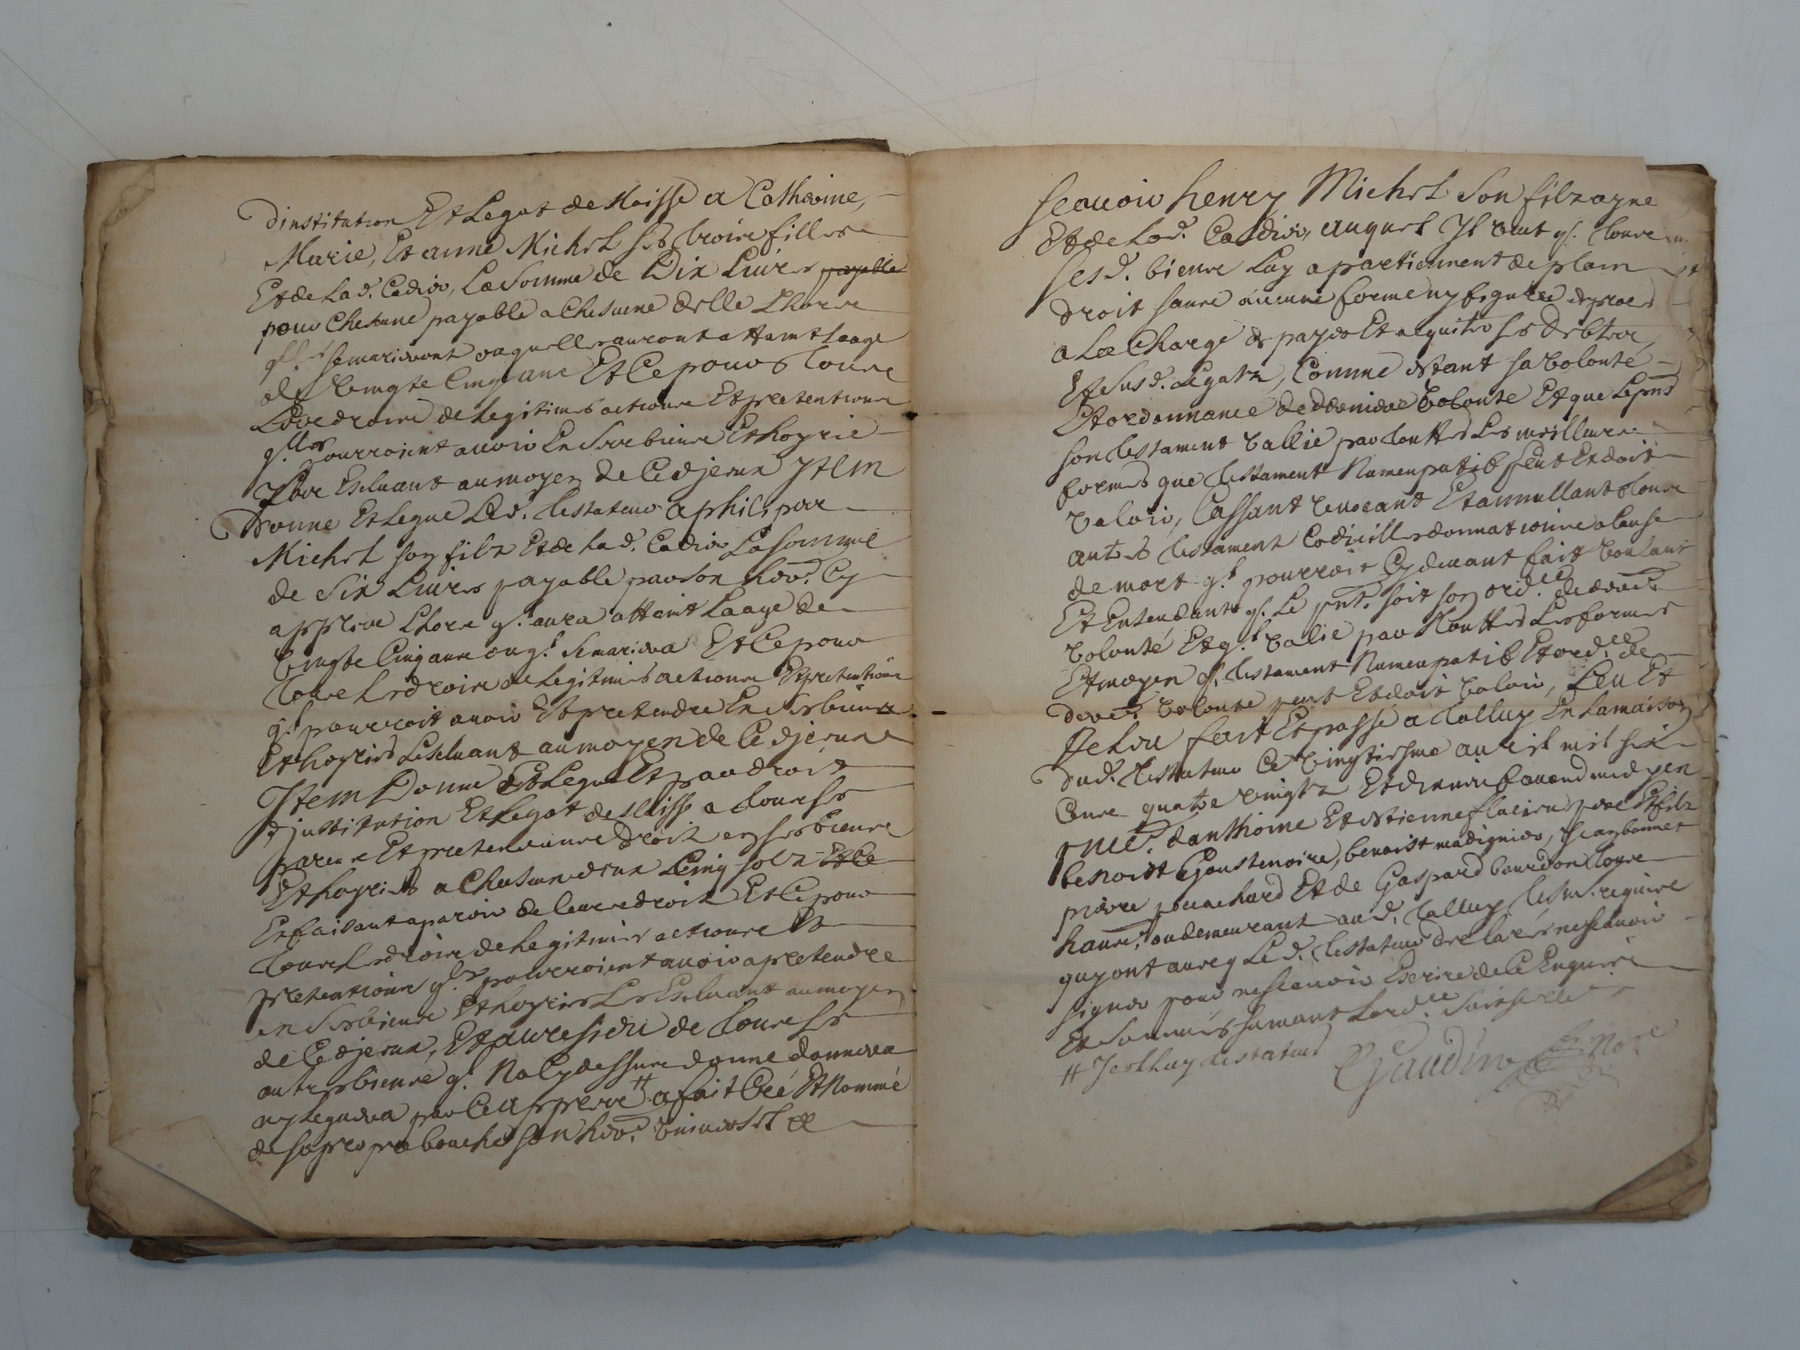 dinstitution Et Legat de Maisse a Catherine,
Marie, Et anne Michel ses troix filles
Et de Lad. Cadier, La Somme de Dix Livres payable
pour Chescune payable a Chescune delle Lhorre
se marieront ou quelles auront attaint Laage
de vingte Cinq ans Et Ce pour toure
Leurs droire de Legitimes actioure Et pretentioure
pourroient avoir En Ses bienre Et hoyrie
Les Excluant au moyen de Ce djessus Item
Donne Et Legue Led. testateur a philipper
Michel son filz Et de Lad. Cadier La Somme
de Six Livres payable par son her. Cy
appres Lhorre ql. aura attaint Laage de
vingte Cinq anre ou ql. Se mariera Et Ce pour
toure Les droire de Legitimes actioure Et pretentioure
ql. pourroit avoir Et pretendre En Ses bienre
Et hoyries Lexcluant au moyen de Ce djessus
Item Donne Et Legue Et par droit
dinstitution Et Legat de Maisse a toure Ses
parenre Et pretendanre droit en Ses bienre
Et hoyries a Chescun deux Cinq solz Et Ce
En faisant aparoir de leurre droit Et Ce pour
toure Les droire de Legitimes actioure Et
pretentioure pourroient avoir a pretendre
en Ses bienre Et hoyries Les Excluant au moyen
de Ce djessus, Et au residu de toure Ses
autres bienre ql. Na Cy dessure donne donnera
ny leguera par Ce appres # a fait Créé Et Nommé
de sa propre bouche Son her. universel &
Scavoir henry Michel Son filz ayne
Et de Lad. Cadier, auquel Il veut ql. toure
Sesd. bienre Luy apartiennent de plain
droit sanre aucune forme ny figure de proces
a La Charge de payer Et aquiter Ses debtes,
Et Susd. Legatz, Comme Estant sa volonté
Et ordonnance de derniere volonte Et que Le pnt
son testament vallie par touttes Les meilleure
formes que testament Nuncupatif peut Et doit
valoir, Cassant revocant Et annullant toure
autres testament Codicilles donnatioure a Cause
de mort ql. pourroit Cy devant fait voulant
Et Entendant ql. Le pnt. soit son ord. de dere
volonté Et ql. valie par touttes Les formes
Et moyen ql. testament Nuncupatif Et ord. de
dere. volonte peut Et doit valoir, Leu Et
Releu fait Et passé a Talluy En La maison
dud. testateur Ce vingtiesme avril mil six
Cenre quatre vingtz Et dix neuf avand midy en
pnce. danthoine Et Estienne pere Et filz
benoist Goustenoire, benoist madignier, Jean bonnet
pierre pouchard Et de Gaspard bourdon toure
habite. ou demeurant aud. Talluy tesm. require
quy ont avecq Led. testateur declaré ne scavoir
signer pour ne scavoir Escrire de Ce Enquire
Et Sommés suivant Lord.
# Jcelluy testateur Gaudin Nore